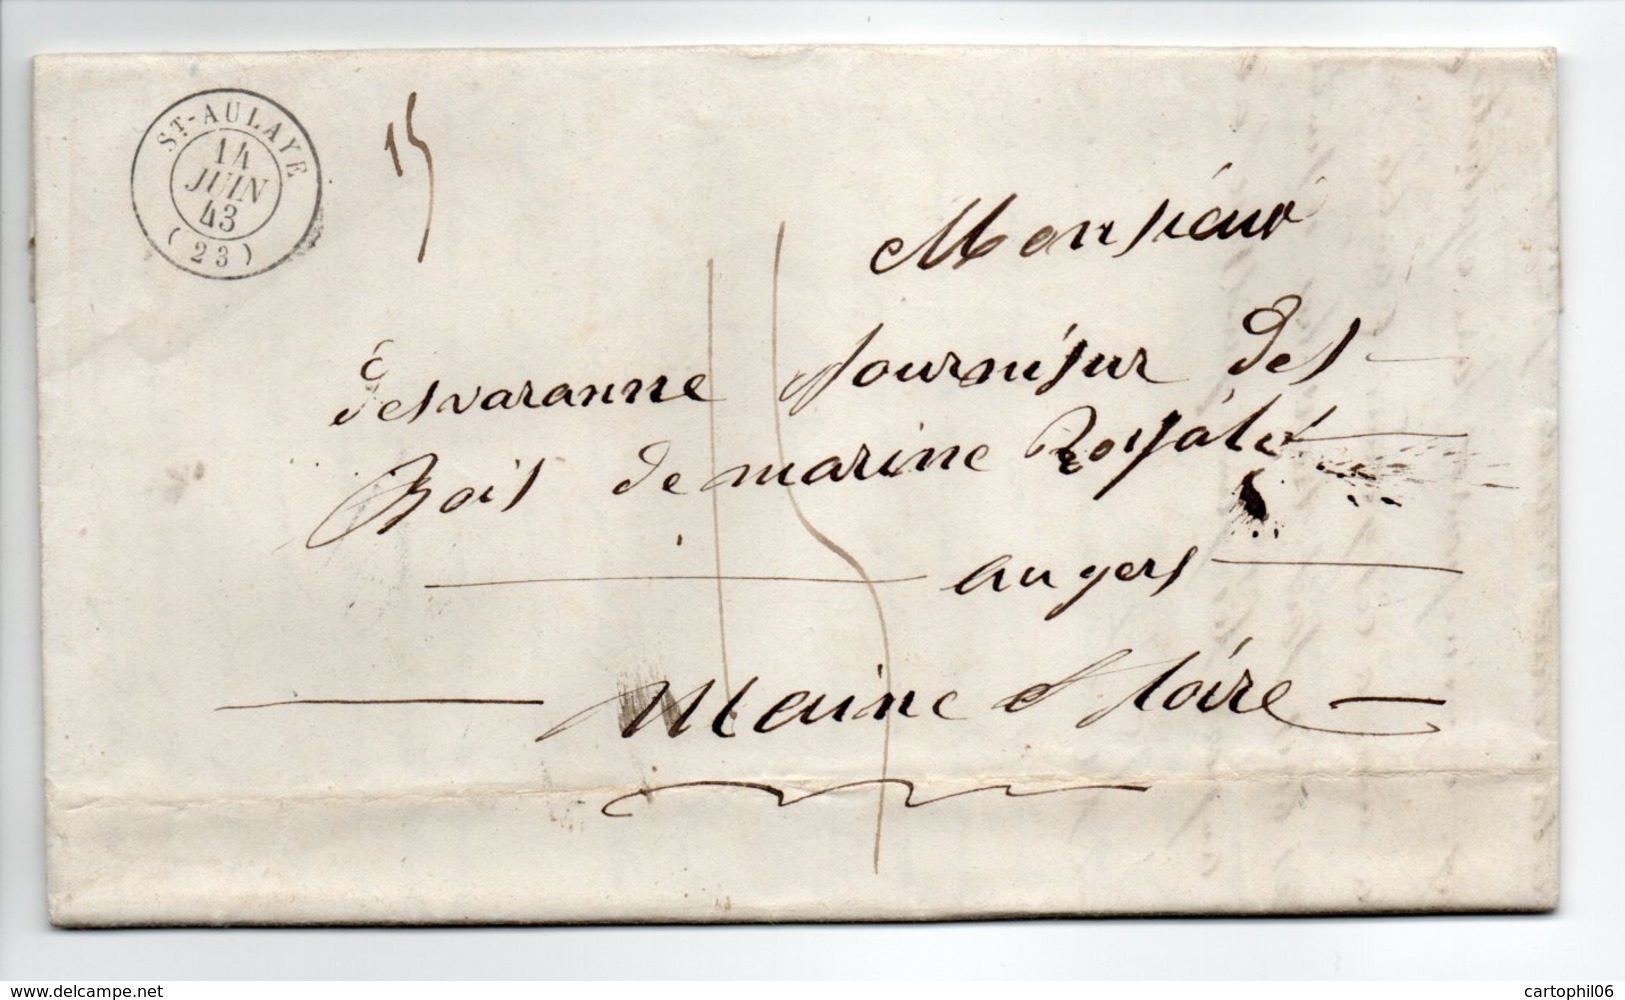 ST-AULAYE
14
JUIN
43
(23)
15
15
Monsieur
desvaranne fournisur des
Bois de marine Royale
angers
Maine et loire
www.delcampe.net
cartophil06